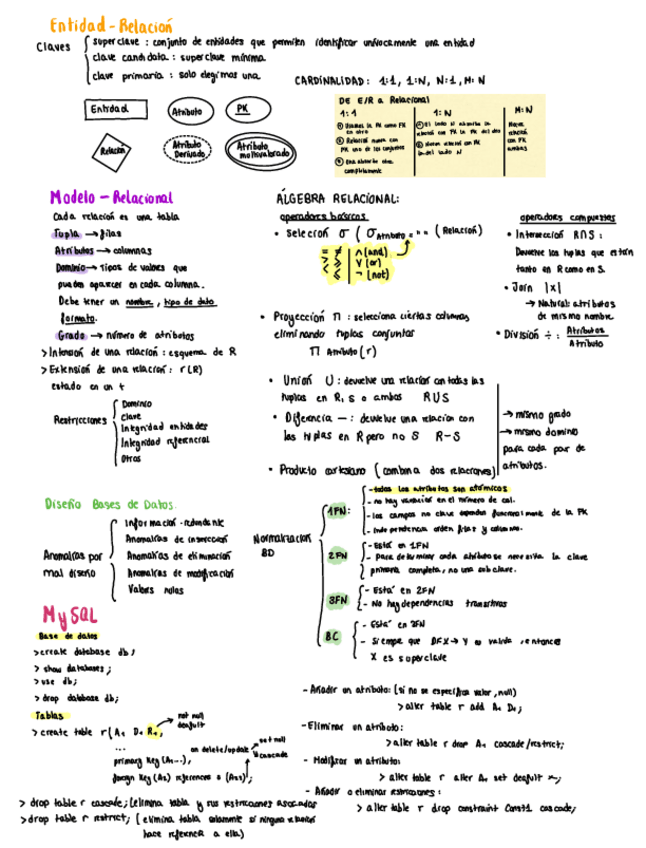 Entidad-Relación
Claves
superclave : conjunto de entidades que permiten identificar unívocamente una entidad
clave candidata : superclave mínima
clave primaria : solo elegimos una
CARDINALIDAD: 1:1, 1:N, N:1, M:N
Entidad
Atributo
PK
Relación
Atributo Derivado
Atributo multivalorado
DE E/R a Relacional
1:1
1:N
M:N
Modelo-Relacional
Cada relación es una tabla
Tupla → filas
Atributos → columnas
Dominio → Tipos de valores que
pueden aparecer en cada columna.
Debe tener un nombre, tipo de dato
formato.
Grado → número de atributos
> Intensión de una relación: esquema de R
> Extensión de una relación: r(R)
estado en un t
Restricciones
Dominio
Clave
Integridad entidades
Integridad referencial
Otros
ÁLGEBRA RELACIONAL:
operadores básicos
• Selección σ ( σ Atributo = " " (Relación)
= ≠
> ≥
< ≤
∧ (and)
∨ (or)
¬ (not)
• Proyección Π : selecciona ciertas columnas
eliminando tuplas conjuntas
Π Atributo (r)
• Unión U : devuelve una relación con todas las
tuplas en R, S o ambas RUS
• Diferencia — : devuelve una relación con
las tuplas en R pero no S R-S
• Producto cartesiano (combina dos relaciones)
→ mismo grado
→ mismo dominio
para cada par de
atributos.
operadores compuestos
• Intersección R∩S :
Devuelve las tuplas que están
tanto en R como en S.
• Join |x|
→ Natural: atributos
de mismo nombre
• División ÷ : Atributos
Atributo
Diseño Bases de Datos.
Anomalías por
mal diseño
Información redundante
Anomalías de inserción
Anomalías de eliminación
Anomalías de modificación
Valores nulos
Normalización
BD
1FN:
- todos los atributos son atómicos
- no hay variación en el número de col.
- los campos no clave dependen funcionalmente de la PK
- Independencia orden filas y columnas.
2FN
- Está en 1FN
- Para determinar cada atributo se necesita la clave
primaria completa, no una subclave.
3FN
- Está en 2FN
- No hay dependencias transitivas
BC
- Está en 3FN
- Siempre que DF X→Y es válida, entonces
X es superclave
MySQL
Base de datos
> create database db;
> show databases;
> use db;
> drop database db;
Tablas
> create table r(A₁ D₁ R₁,
not null
deafult
...
on delete/update
set null
cascade
primary key (A₁...),
foreign key (A₂) references s (A₂₂);
> drop table r cascade; (elimina tabla y sus restricciones asociadas
> drop table r restrict; (elimina tabla solamente si ninguna relación
hace referencia a ella)
- Añadir un atributo: (si no se especifica valor, null)
> alter table r add A₁ D₁;
- Eliminar un atributo:
> alter table r drop A₁ cascade/restrict;
- Modificar un atributo:
> alter table r alter A₁ set deafult
- Añadir o eliminar restricciones:
> alter table r drop constraint Const1 cascade;